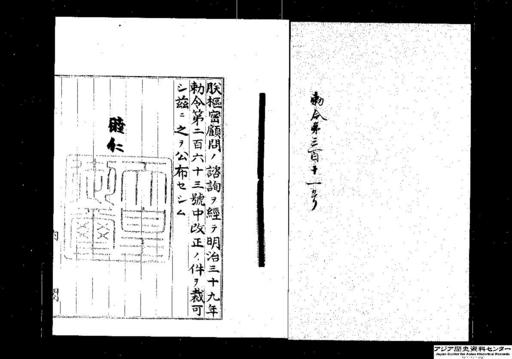 勅令第三百十一号
朕樞密顧問ノ諮詢ヲ經テ明治三十九年
勅令第二百六十三號中改正ノ件ヲ裁可
シ茲ニ之ヲ公布セシム
睦仁
天皇御璽
アジア歴史資料センター
Japan Center for Asian Historical Records